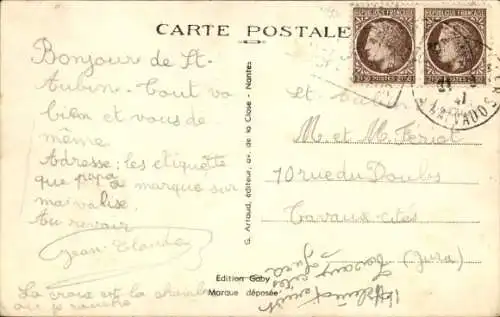 CARTE POSTALE
Bonjour de St-
Aubin. Tout va
bien et vous de
même
Adresse: les etiquette
que papa a marque sur
ma valise.
Au revoir
Jean-Claude
La croix est la chambre
où je couche
G. Arraud, éditeur, av. de la Close - Nantes
Edition Gaby
Marque déposée
POSTES
47
CALVADOS
St Aubin
M. et M. Feriot
70 rue du Doubs
Tavaux-cites
(Jura)
Tavaux cites
Jura